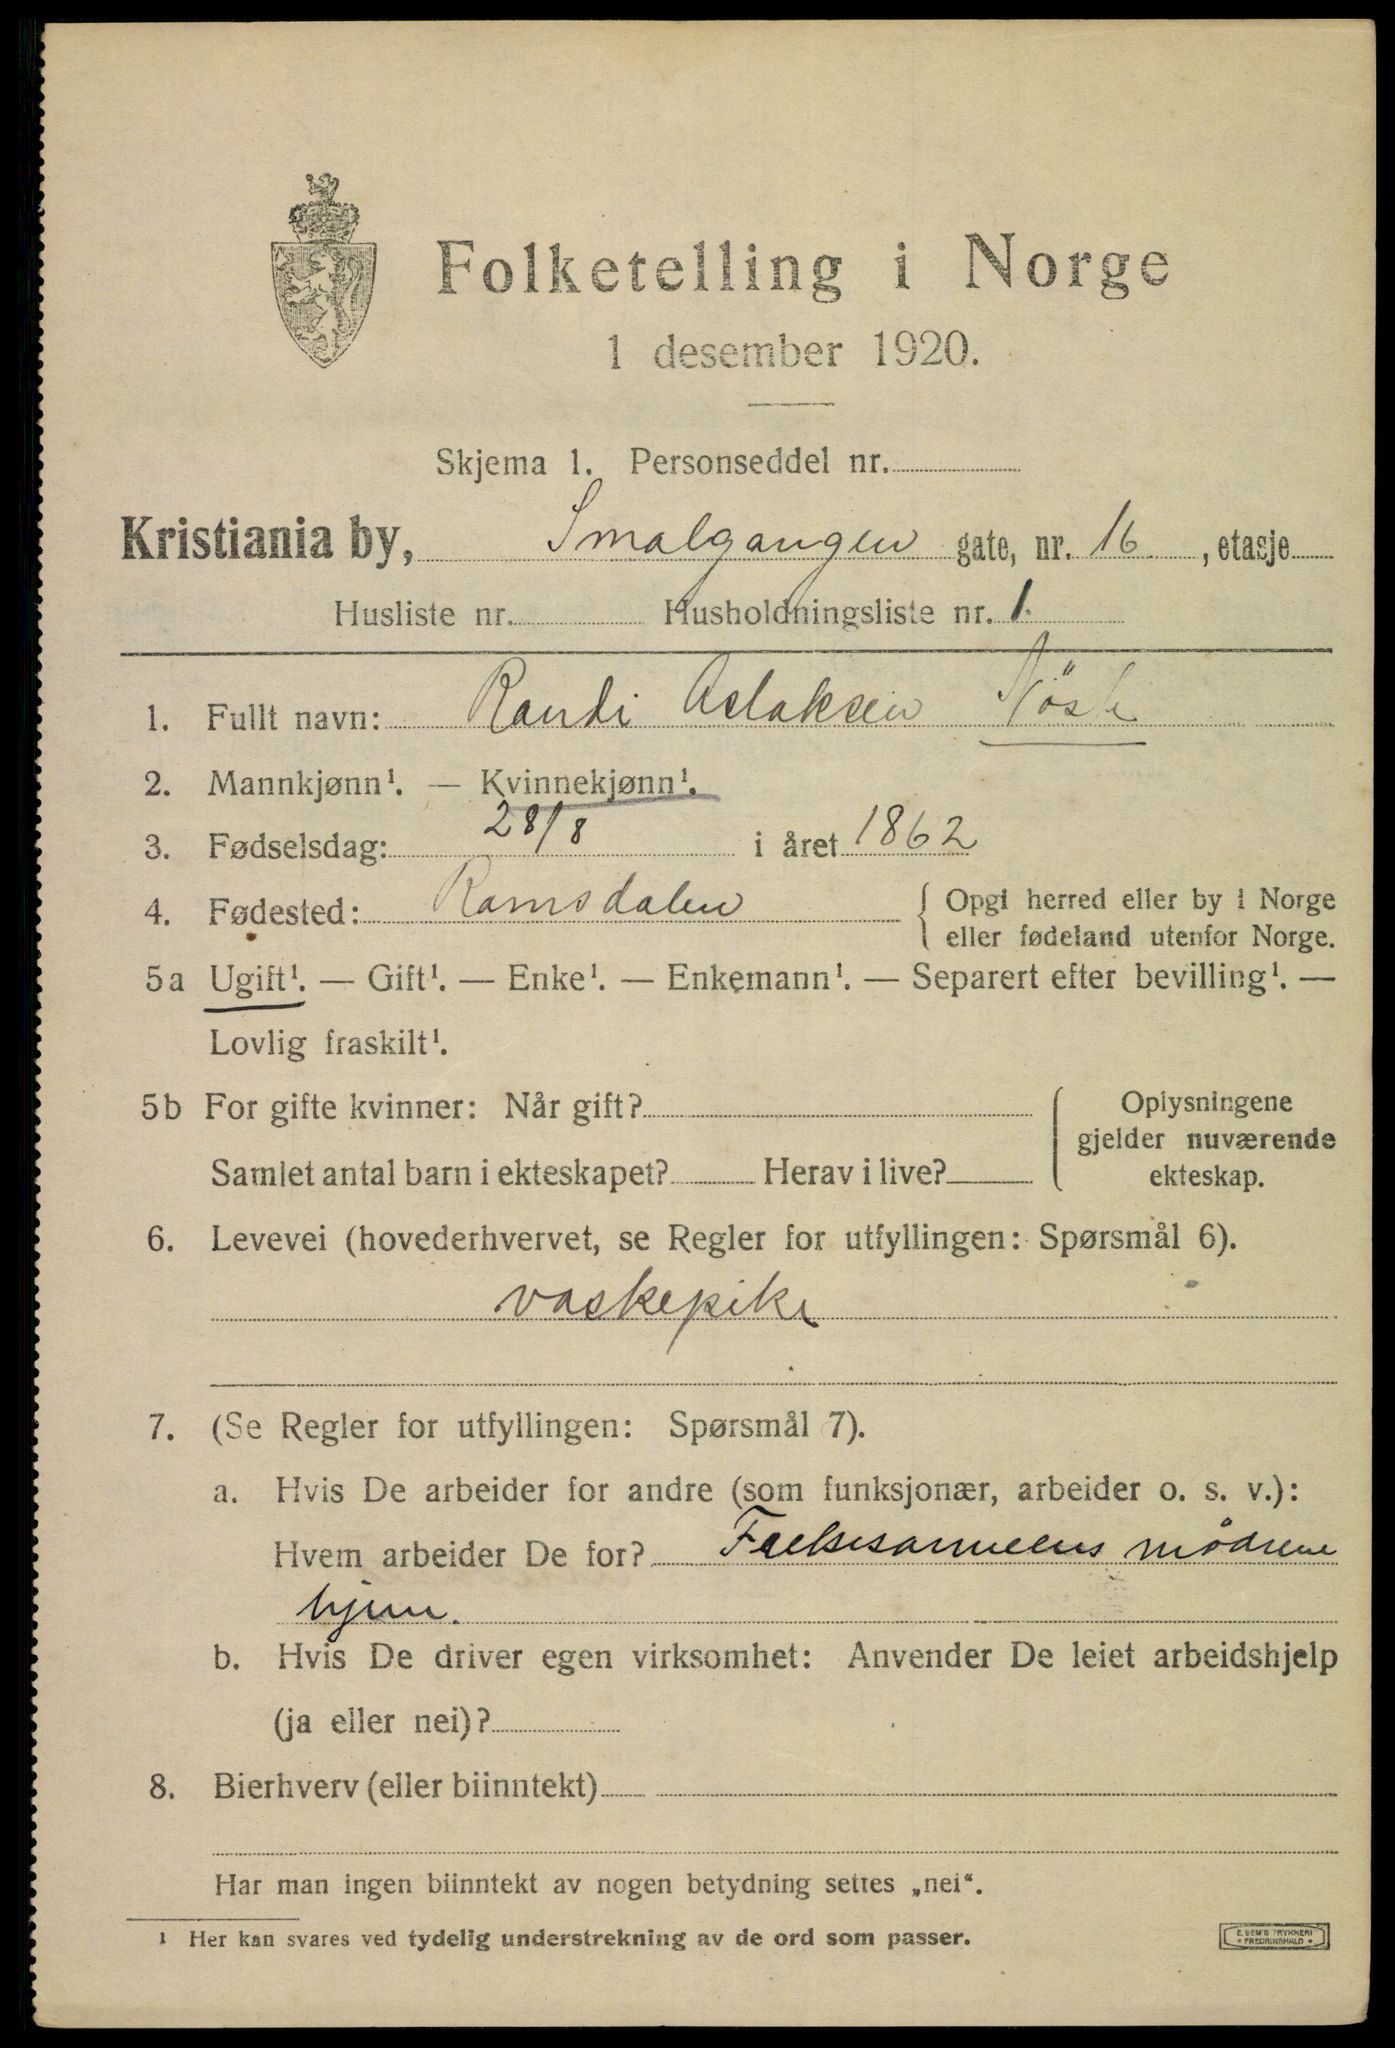 Folketelling i Norge
1 desember 1920.
Skjema 1. Personseddel nr.
Kristiania by, Smalgangen gate, nr. 16, etasje
Husliste nr. Husholdningsliste nr. 1.
1. Fullt navn: Randi Aslaksen Nöste
2. Mannkjønn¹. — Kvinnekjønn¹.
3. Fødselsdag: 28/8 i året 1862
4. Fødested: Ramsdalen { Opgi herred eller by i Norge
eller fødeland utenfor Norge.
5a Ugift¹. — Gift¹. — Enke¹. — Enkemann¹. — Separert efter bevilling¹. —
Lovlig fraskilt¹.
5b For gifte kvinner: Når gift? { Oplysningene
gjelder nuværende
Samlet antal barn i ekteskapet? Herav i live? ekteskap.
6. Levevei (hovederhvervet, se Regler for utfyllingen: Spørsmål 6).
vaskepike
7. (Se Regler for utfyllingen: Spørsmål 7).
a. Hvis De arbeider for andre (som funksjonær, arbeider o. s. v.):
Hvem arbeider De for? Frelsesarmeens mødrene
hjem.
b. Hvis De driver egen virksomhet: Anvender De leiet arbeidshjelp
(ja eller nei)?
8. Bierhverv (eller biinntekt)
Har man ingen biinntekt av nogen betydning settes „nei“.
¹ Her kan svares ved tydelig understrekning av de ord som passer.
E. SEM'S TRYKKERI
* FREDRIKSHALD *